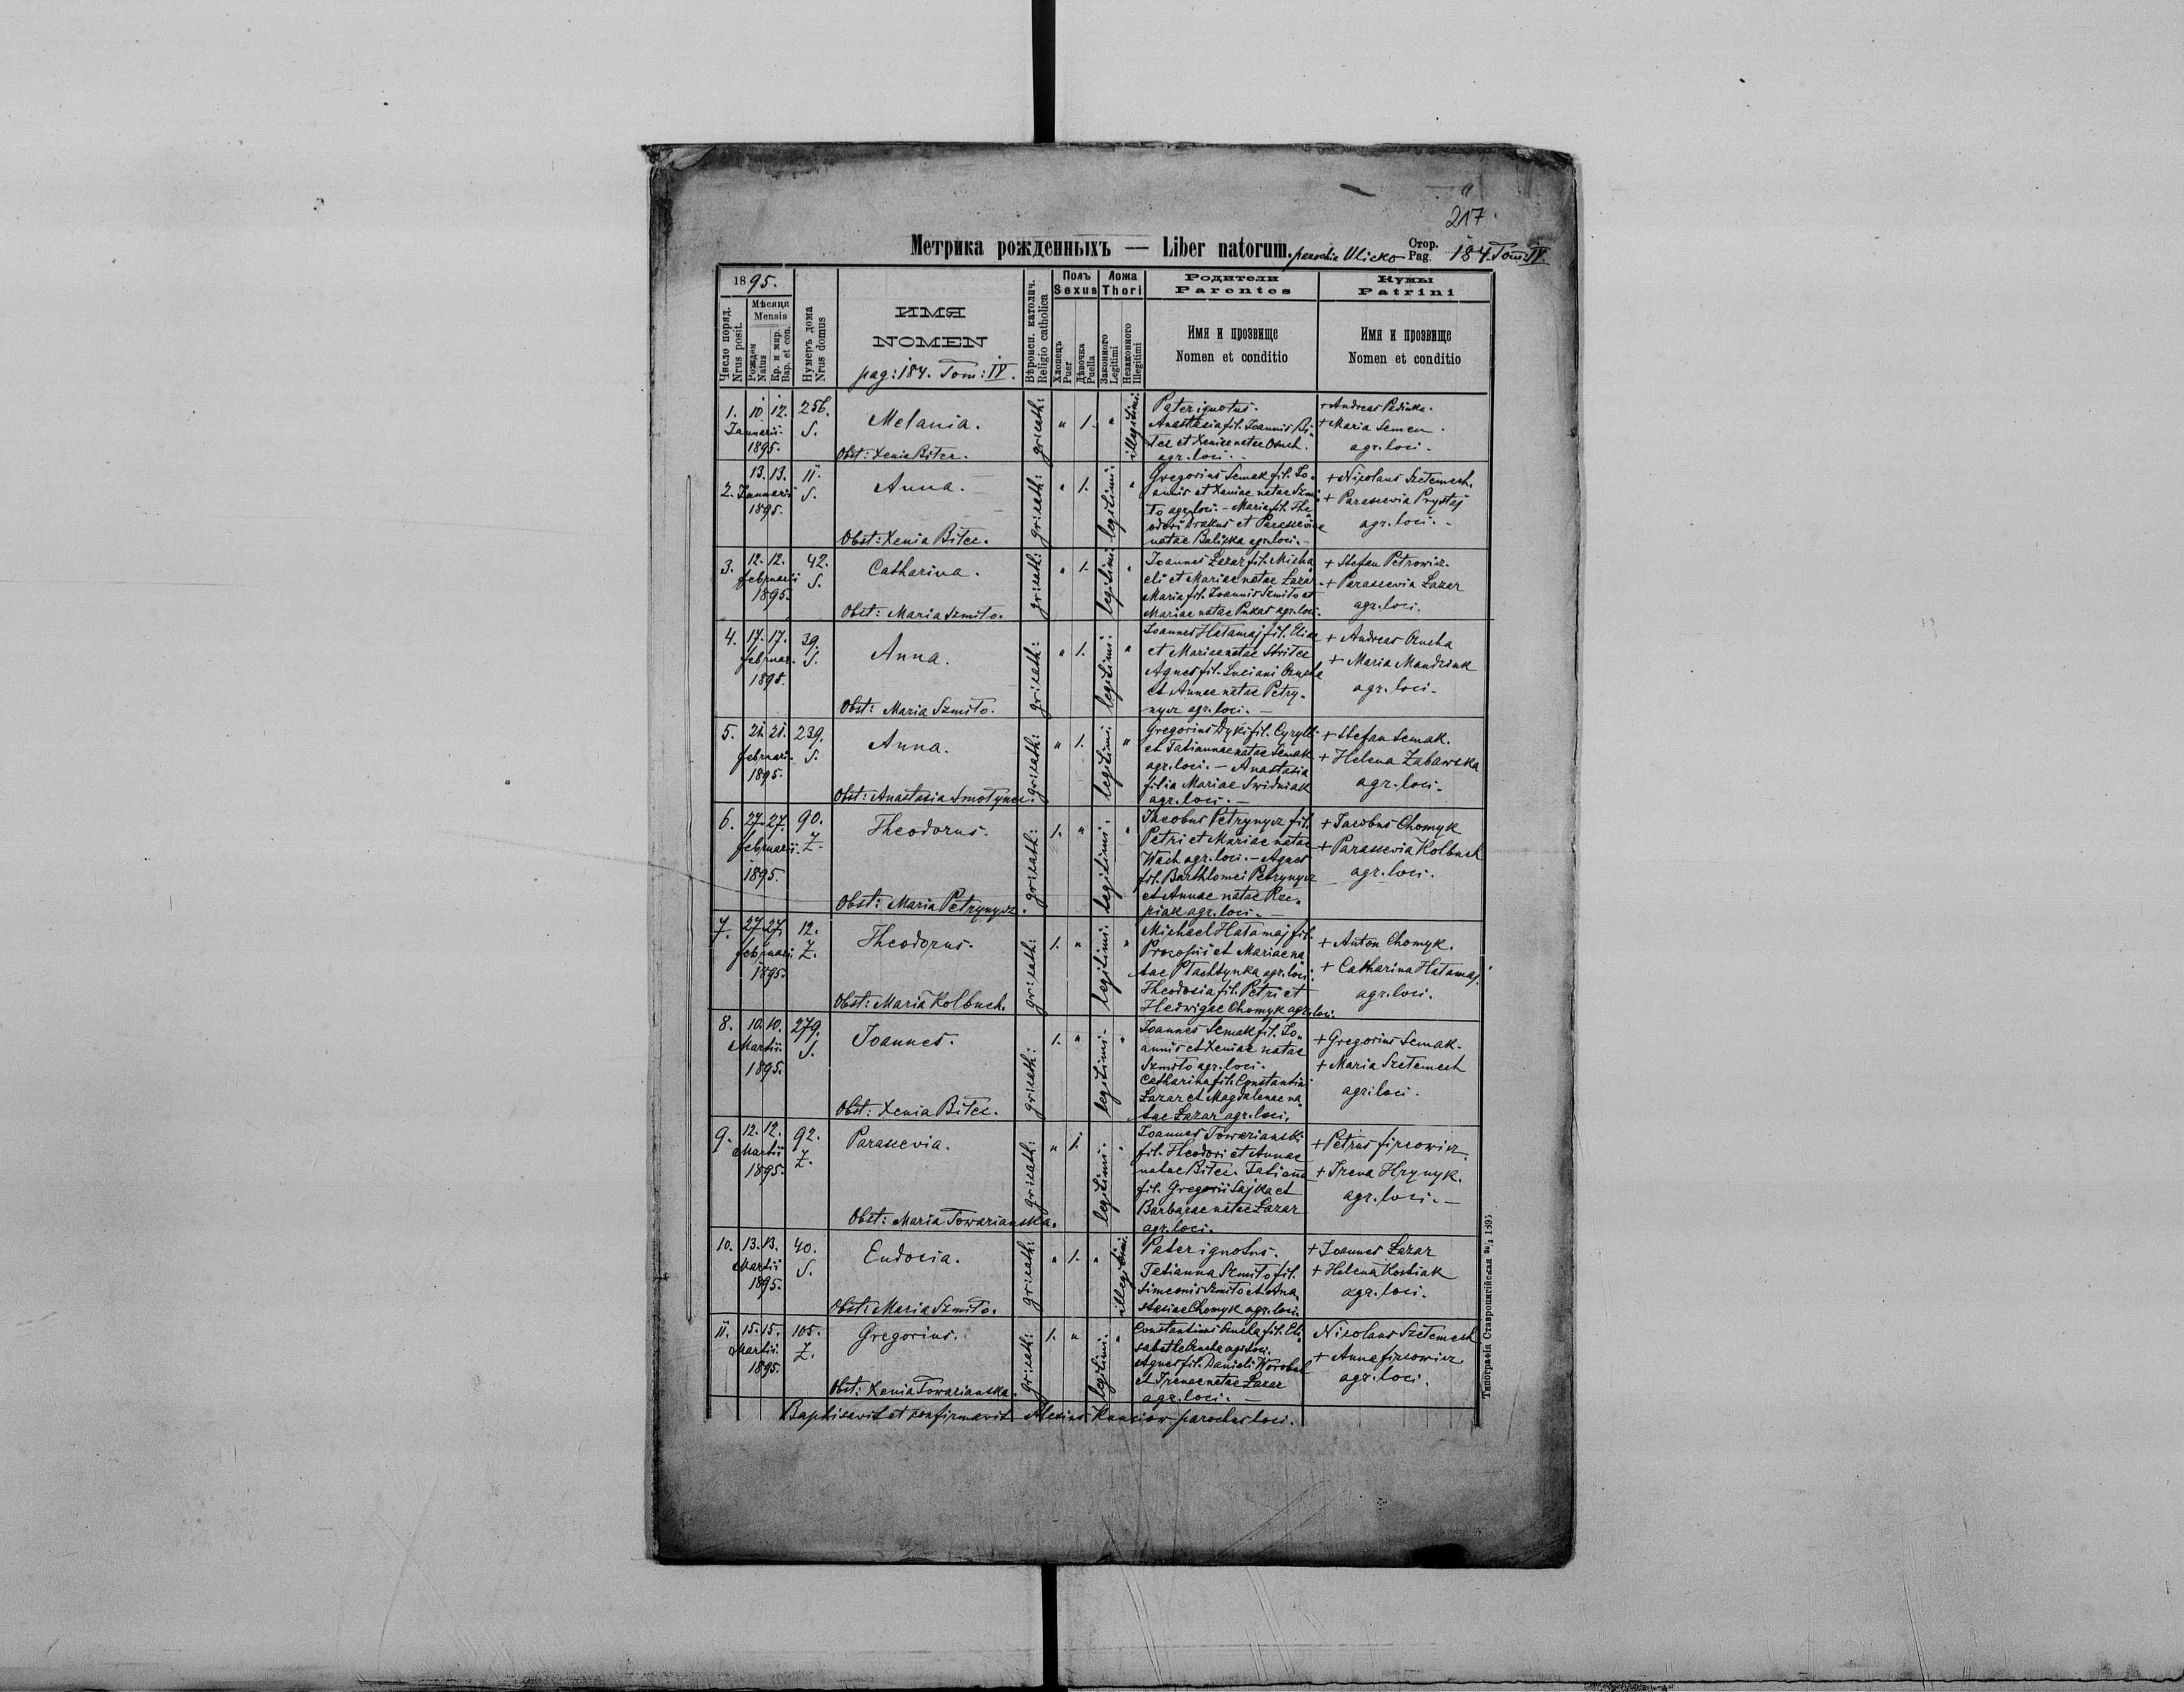 217.
Метрика рожденныхъ — Liber natorum. parochia Ulicko Стор. Pag. 184. Tom: IV.
1895.
Число поряд. Nrus posit.
Мѣсяця Mensis
Рожден Natus
Кр. и мир. Bap. et con.
Нумеръ дома Nrus domus
ИМЯ
NOMEN
pag: 184. Tom: IV.
Вѣроисп. католич. Religio catholica
Полъ Sexus
Хлопецъ Puer
Дѣвочка Puella
Ложа Thori
Законного Legitimi
Незаконного Illegitimi
Родители
Parentes
Имя и прозвище
Nomen et conditio
Кумы
Patrini
Имя и прозвище
Nomen et conditio
1. 10 12. Januarii 1895. 256. S.
Melania.
Obst: Xenia Bitec.
gr: cath: " 1. " illegitimi.
Pater ignotus.
Anastasia fil. Joannis Bi-
tec et Xeniae natae
agr. loci. -
+ Andreas
+ Maria Semen.
agr. loci.
2. 13. 13. Januarii 1895. 11. S.
Anna.
Obst: Xenia Bitec.
gr: cath: " 1. legitimi. "
Gregorius Semak fil. Jo-
annis et Xeniae natae Szmi-
to agr. loci. - Maria fil. The-
odori et Parascevia
natae agr. loci. -
+ Nicolaus Szełemech.
+ Parascevia Prystaj
agr. loci. -
3. 12. 12. februarii 1895. 42. S.
Catharina.
Obst: Maria Szmito.
gr: cath: " 1. legitimi "
Joannes Łazar fil. Micha-
eli et Mariae natae Łazar.
Maria fil. Joannis Szmito et
Mariae natae Pukas agr. loci.
+ Stefan Petrowicz.
+ Parascevia Łazar
agr. loci.
4. 17. 17. februar. 1895. 39. S.
Anna.
Obst: Maria Szmito.
gr: cath: " 1. legitimi. "
Joannes Hałamaj fil. Eliae
et Mariae natae
Agnes fil. Luciani
et Annae natae Petry-
nycz agr. loci. -
+ Andreas
+ Maria Mandziuk
agr. loci.
5. 21. 21. februari. 1895. 239. S.
Anna.
Obst: Anastasia
gr: cath: " 1. legitimi. "
Gregorius Dyki fil. Cyrylli
et Tatiannae natae Semak
agr. loci. - Anastasia
filia Mariae Swidniak
agr. loci. -
+ Stefan Semak.
+ Helena Zabawska
agr. loci.
6. 27. 27. februarii. 1895. 90. Z.
Theodorus.
Obst: Maria Petrynycz.
gr: cath: 1. " legitimi. "
Jacobus Petrynycz fil.
Petri et Mariae natae
Wach agr. loci. - Agnes
fil. Barthlomei Petrynycz
et Annae natae Rze-
piak agr. loci. -
+ Jacobus Chomyk
+ Parascevia Kolbuch
agr. loci.
7. 27. 27. februari 1895. 12. Z.
Theodorus.
Obst: Maria Kolbuch.
gr: cath: 1. " legitimi. "
Michael Hałamaj fil.
Procopii et Mariae na-
tae Płachtynka agr. loci.
Theodosia fil. Petri et
Hedwigae Chomyk agr. loci.
+ Anton Chomyk.
+ Catharina Hałamaj.
agr. loci.
8. 10. 10. Martii 1895. 279. S.
Joannes.
Obst: Xenia Bitec.
gr: cath: 1. " legitimi. "
Joannes Semak fil. Jo-
annis et Xeniae natae
Szmito agr. loci.
Catharina fil. Constantini
Łazar et Magdalenae na-
tae Łazar agr. loci.
+ Gregorius Semak.
+ Maria Szełemech
agr. loci.
9. 12. 12. Martii 1895. 92. Z.
Parascevia.
Obst: Maria Towarianska.
gr: cath: " 1. legitimi. "
Joannes Towarianski
fil. Theodori et Annae
natae Bitec. Tatianna
fil. Gregorii Sajka et
Barbarae natae Łazar
agr. loci.
+ Petrus fircowicz.
+ Irena Hrynyk.
agr. loci. -
10. 13. 13. Martii 1895. 40. S.
Eudocia.
Obst: Maria Szmito.
gr: cath: " 1. " illegitimi.
Pater ignotus.
Tatianna Szmito fil.
Simeonis Szmito et Ana-
stasiae Chomyk agr. loci.
+ Joannes Łazar
+ Helena Kostiak
agr. loci.
11. 15. 15. Martii. 1895. 105. Z.
Gregorius.
Obst: Xenia Towarianska.
gr: cath: 1. " legitimi. "
Constantinus fil. Eli-
sabethae agr. loci.
Agnes fil. Danieli Worobel
et Irenae natae Łazar
agr. loci. -
Nicolaus Szełemech
+ Anna fircowicz
agr. loci.
Baptisavit et confirmavit Alexius parochus loci.
Типографія Ставропигійская 1895